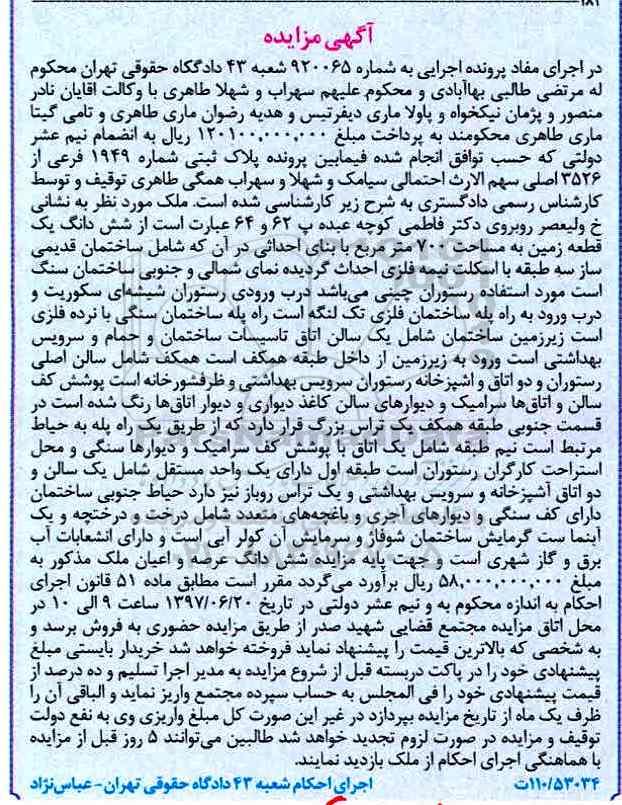 آگهی مزایده
در اجرای مفاد پرونده اجرایی به شماره ۹۲۰۰۶۵ شعبه ۴۳ دادگاه حقوقی تهران محکوم
له مرتضی طالبی بهاآبادی و محکوم علیهم سهراب و شهلا طاهری با وکالت اقایان نادر
منصور و پژمان نیکخواه و پاولا ماری دیفرتیس و هدیه رضوان ماری طاهری و تامی گیتا
ماری طاهری محکومند به پرداخت مبلغ ۱۲۰۱۰۰,۰۰۰,۰۰۰ ریال به انضمام نیم عشر
دولتی که حسب توافق انجام شده فیمابین پرونده پلاک ثبتی شماره ۱۹۴۹ فرعی از
۳۵۲۶ اصلی سهم الارث احتمالی سیامک و شهلا و سهراب همگی طاهری توقیف و توسط
کارشناس رسمی دادگستری به شرح زیر کارشناسی شده است. ملک مورد نظر به نشانی
خ ولیعصر روبروی دکتر فاطمی کوچه عبده پ ۶۲ و ۶۴ عبارت است از شش دانگ یک
قطعه زمین به مساحت ۷۰۰ متر مربع با بنای احداثی در آن که شامل ساختمان قدیمی
ساز سه طبقه با اسکلت نیمه فلزی احداث گردیده نمای شمالی و جنوبی ساختمان سنگ
است مورد استفاده رستوران چینی می‌باشد درب ورودی رستوران شیشه‌ای سکوریت و
درب ورود به راه پله ساختمان فلزی تک لنگه است راه پله ساختمان سنگی با نرده فلزی
است زیرزمین ساختمان شامل یک سالن اتاق تاسیسات ساختمان و حمام و سرویس
بهداشتی است ورود به زیرزمین از داخل طبقه همکف است همکف شامل سالن اصلی
رستوران و دو اتاق و اشپزخانه رستوران سرویس بهداشتی و ظرفشورخانه است پوشش کف
سالن و اتاق‌ها سرامیک و دیوارهای سالن کاغذ دیواری و دیوار اتاق‌ها رنگ شده است در
قسمت جنوبی طبقه همکف یک تراس بزرگ قرار دارد که از طریق یک راه پله به حیاط
مرتبط است نیم طبقه شامل یک اتاق با پوشش کف سرامیک و دیوارها سنگی و محل
استراحت کارگران رستوران است طبقه اول دارای یک واحد مستقل شامل یک سالن و
دو اتاق آشپزخانه و سرویس بهداشتی و یک تراس روباز نیز دارد حیاط جنوبی ساختمان
دارای کف سنگی و دیوارهای آجری و باغچه‌های متعدد شامل درخت و درختچه و یک
آبنما ست گرمایش ساختمان شوفاژ و سرمایش آن کولر آبی است و دارای انشعابات آب
برق و گاز شهری است و جهت پایه مزایده شش دانگ عرصه و اعیان ملک مذکور به
مبلغ ۵۸,۰۰۰,۰۰۰,۰۰۰ ریال برآورد می‌گردد مقرر است مطابق ماده ۵۱ قانون اجرای
احکام به اندازه محکوم به و نیم عشر دولتی در تاریخ ۱۳۹۷/۰۶/۲۰ ساعت ۹ الی ۱۰ در
محل اتاق مزایده مجتمع قضایی شهید صدر از طریق مزایده حضوری به فروش برسد و
به شخصی که بالاترین قیمت را پیشنهاد نماید فروخته خواهد شد خریدار بایستی مبلغ
پیشنهادی خود را در پاکت دربسته قبل از شروع مزایده به مدیر اجرا تسلیم و ده درصد از
قیمت پیشنهادی خود را فی المجلس به حساب سپرده مجتمع واریز نماید و الباقی آن را
ظرف یک ماه از تاریخ مزایده بپردازد در غیر این صورت کل مبلغ واریزی وی به نفع دولت
توقیف و مزایده در صورت لزوم تجدید خواهد شد طالبین می‌توانند ۵ روز قبل از مزایده
با هماهنگی اجرای احکام از ملک بازدید نمایند.
۱۱۰/۵۳۰۳۴ت اجرای احکام شعبه ۴۳ دادگاه حقوقی تهران - عباس‌نژاد